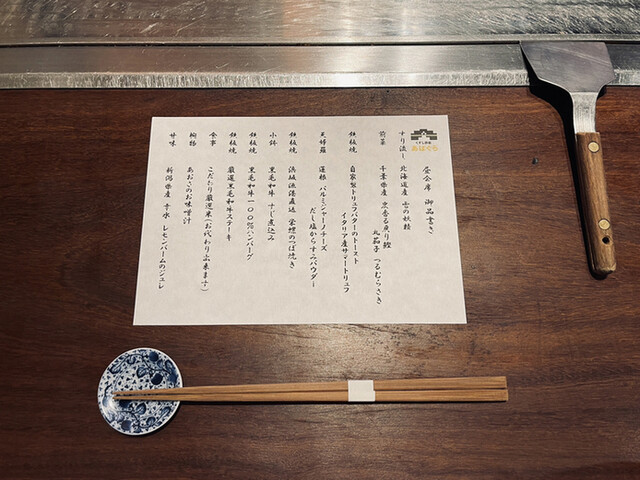 昼会席 御品書き
すり流し 北海道産 雪の妖精
前菜 千葉県産 藁香る炙り鰹
丸茄子 つるむらさき
鉄板焼 自家製トリュフバターのトースト
イタリア産サマートリュフ
天婦羅 蓮根 パルミジャーノチーズ
だし塩からすみパウダー
鉄板焼 浜坂漁港直送 栄螺のつぼ焼き
小鉢 黒毛和牛 すじ煮込み
鉄板焼 黒毛和牛一〇〇%ハンバーグ
鉄板焼 厳選黒毛和牛ステーキ
食事 こだわり厳選米(お代わり出来ます)
椀物 あおさのお味噌汁
甘味 新潟県産 牛水 レモンバームのジュレ